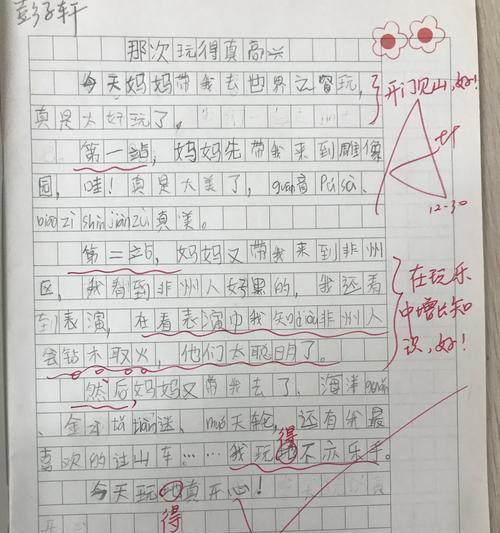 彭子轩
那次玩得真高兴
今天妈妈带我去世界之窗玩,
真是太好玩了。
开门见山,好!
第一站,妈妈先带我来到雕像
园,哇!真是太美了,guān音Pú sà、
真美。
12-30
第二站,妈妈又带我来到非州
区,我看到非州人好黑的,我还看
到表演,在看表演中我知dào非州人
会钻木取火,他们太聪明了。
在玩乐
中增长知
识,好!
然后妈妈又带我去了、海洋
、金字塔 迷、mó天轮,还有我最
喜欢的过山车……我玩地不亦乐乎。
得
今天玩地真开心!
得